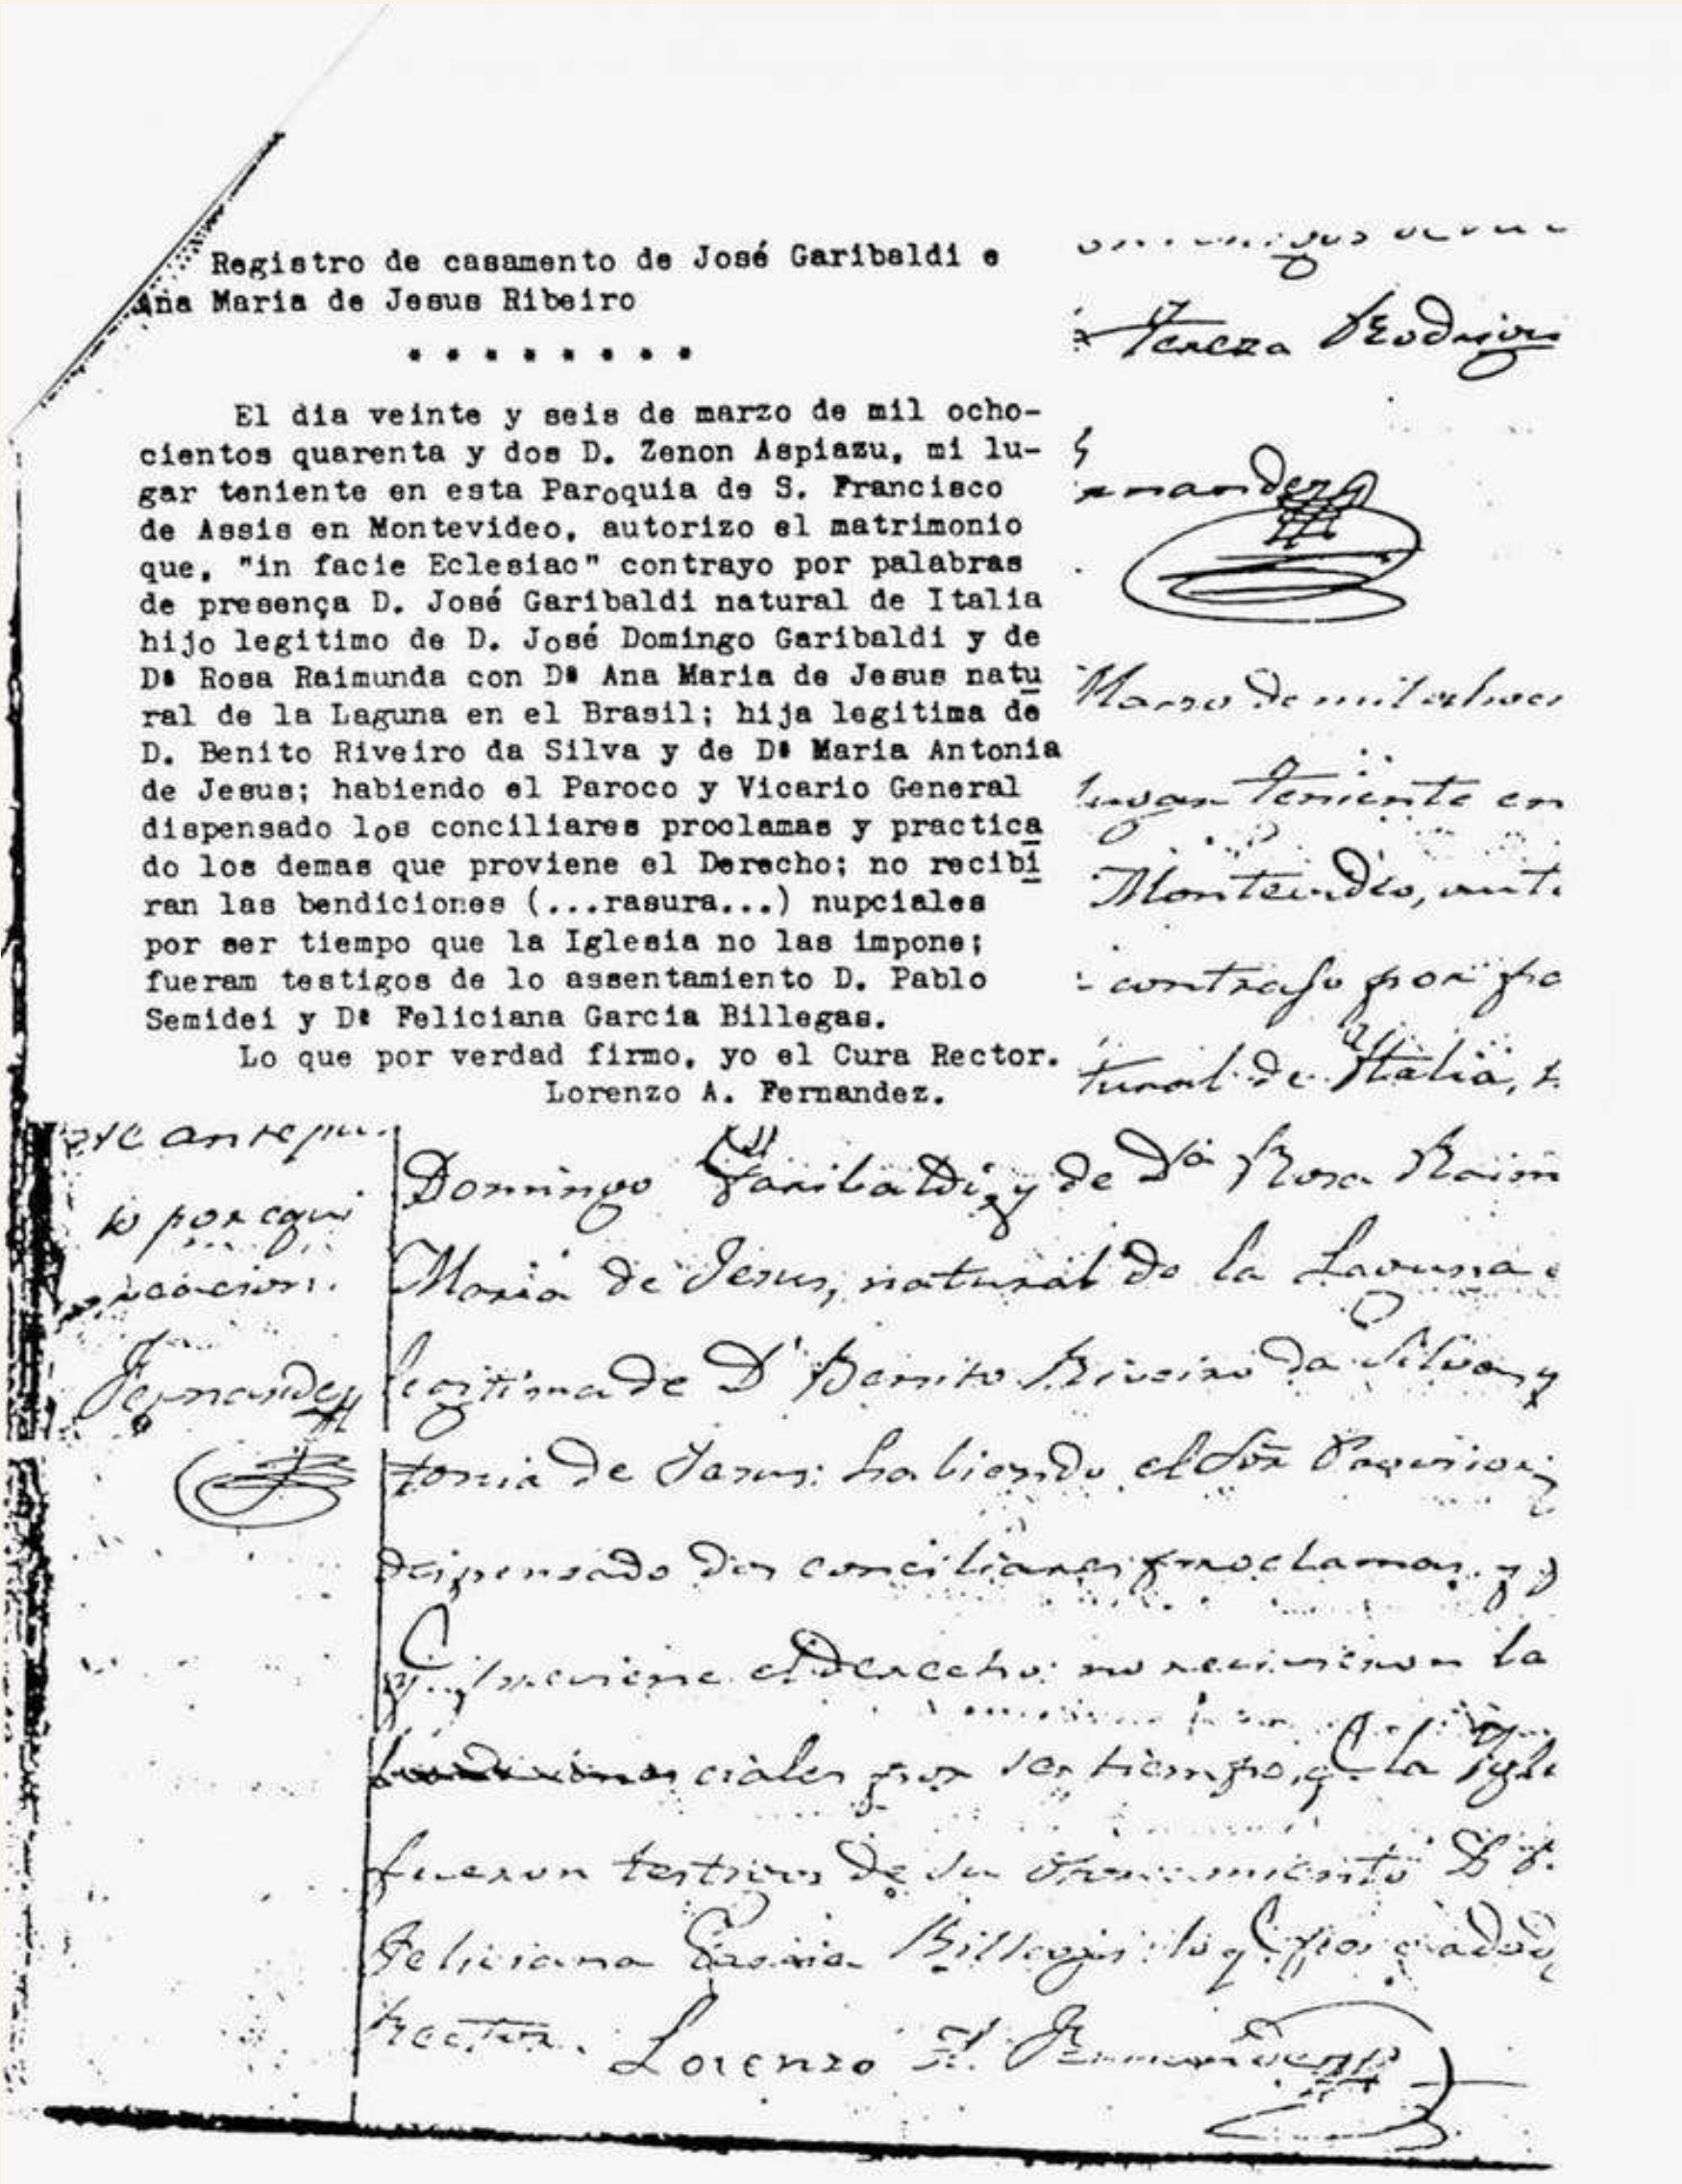 Registro de casamento de José Garibaldi e
Ana Maria de Jesus Ribeiro
El dia veinte y seis de marzo de mil ocho-
cientos quarenta y dos D. Zenon Aspiazu, mi lu-
gar teniente en esta Paroquia de S. Francisco
de Assis en Montevideo, autorizo el matrimonio
que, "in facie Eclesiao" contrayo por palabras
de presença D. José Garibaldi natural de Italia
hijo legitimo de D. José Domingo Garibaldi y de
Dª Rosa Raimunda con Dª Ana Maria de Jesus natu
ral de la Laguna en el Brasil; hija legitima de
D. Benito Riveiro da Silva y de Dª Maria Antonia
de Jesus; habiendo el Paroco y Vicario General
dispensado los conciliares proclamas y practica
do los demas que proviene el Derecho; no recibi
ran las bendiciones (...rasura...) nupciales
por ser tiempo que la Iglesia no las impone;
fueram testigos de lo assentamiento D. Pablo
Semidei y Dª Feliciana Garcia Billegas.
Lo que por verdad firmo, yo el Cura Rector.
Lorenzo A. Fernandez.
Tereza Rodrigu
rnandez
Marzo de mil ochoci
lugar teniente en
Montevideo, aut
contrajo por pa
tural de Italia,
Domingo Garibaldi, y de Dª Rosa Raim
Maria de Jesus, natural de la Laguna
Fernandez
legitima de D. Benito Riveiro da Silva, y
tonia de Jesus: habiendo el Sor
dispensado dos conciliares proclamas, y
q. previene el derecho: no recivieron la
ciales por ser tiempo, q. la Igle
fueron testigos de su
Feliciana Garcia Billegas: lo q. por
Rector. Lorenzo A. Fernandez